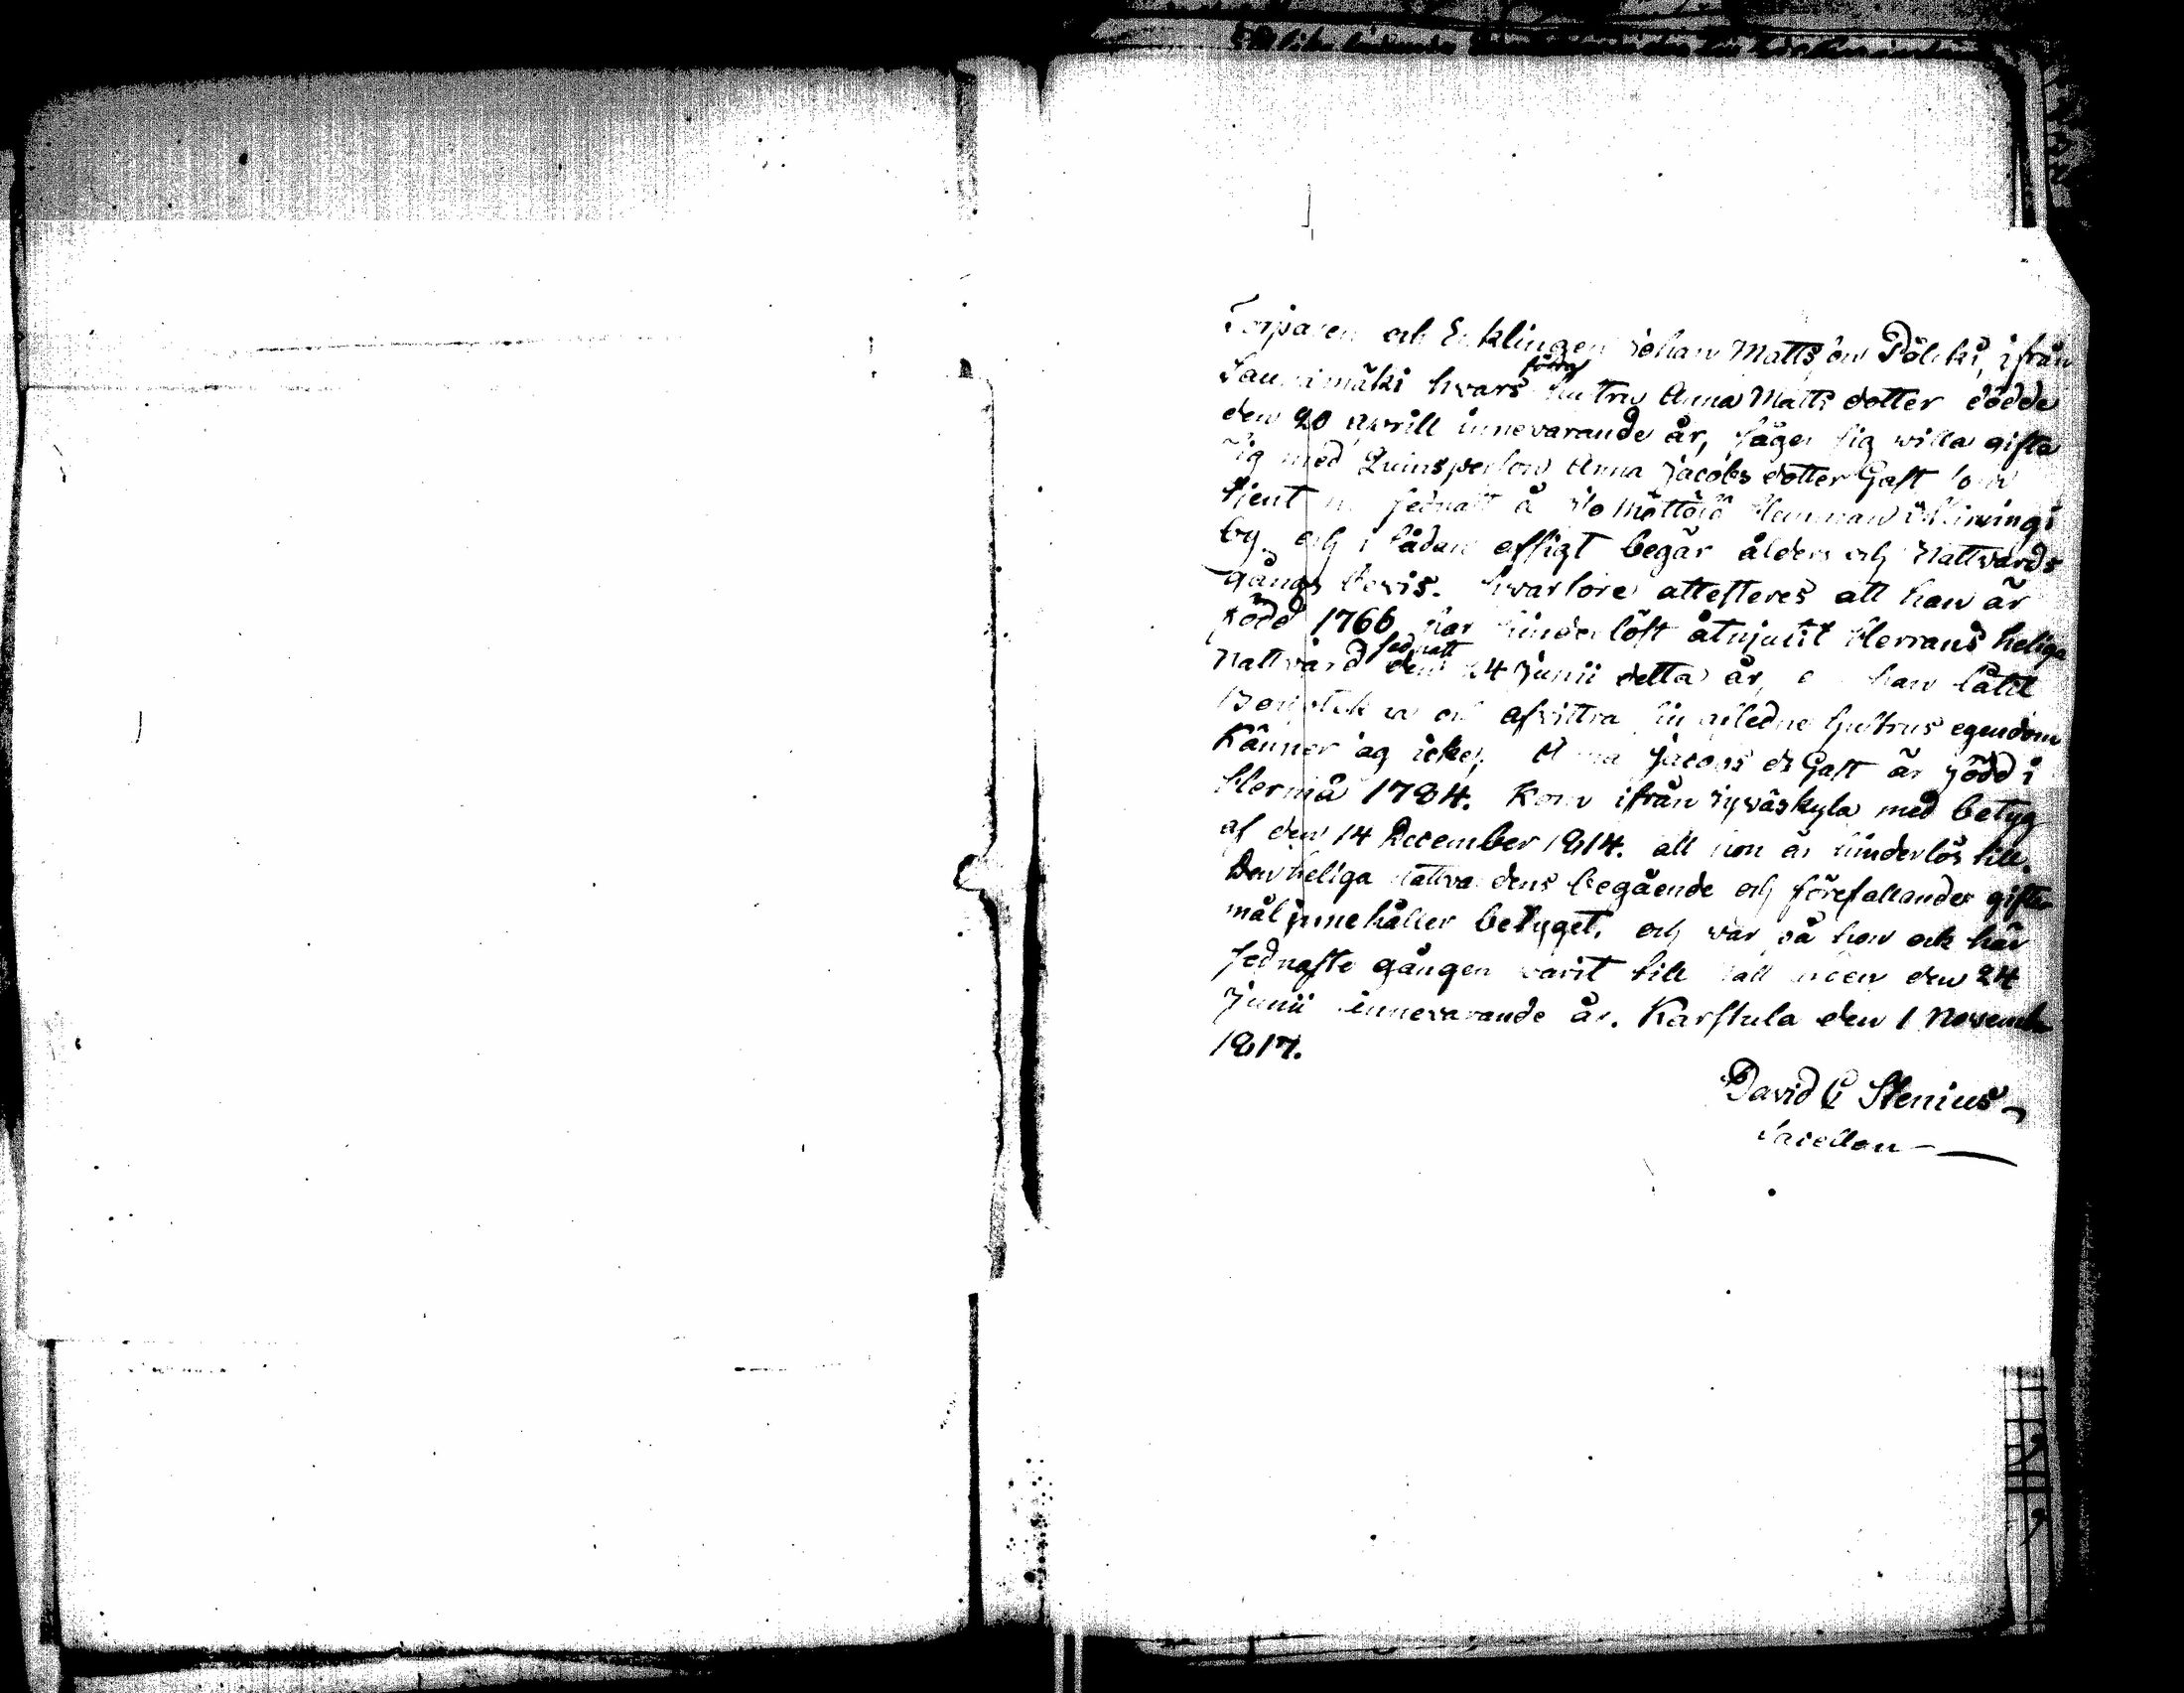 Torparen och Enklingen Johan Mattsson Pölcki, ifrån
Saunamäki hvars förra hustru Anna Matts dotter dödde
den 20 Aprill innevarande år, säger sig willa gifta
sig med Quinsperson Anna Jacobs dotter Gast som
tjent nu sednast å Hemman i
by och i sådan afsigt begär ålders och Nattvards
gångs bevis. hvarföre attesteres att han är
född 1766 har hinderlöst åtnjutit Herrans heliga
Nattvard sednast den 24 Junii detta år, om han låtit
Boupteckna och afvittra sin afledne hustrus egendom
känner jag icke, Anna Jacobs dr Gast är född i
1784. Kom ifrån Jyväskyla med betyg
af den 14 December 1814. att hon är hinderlös till
Den heliga Nattvardens begående och förefallande gifte
mål innehåller betyget, och var då hon ock här
sednaste gången varit till Nattvarden den 24
Junii innevarande år. Karstula den 1 Novemb
1817.
David G Stenius
Sacellan